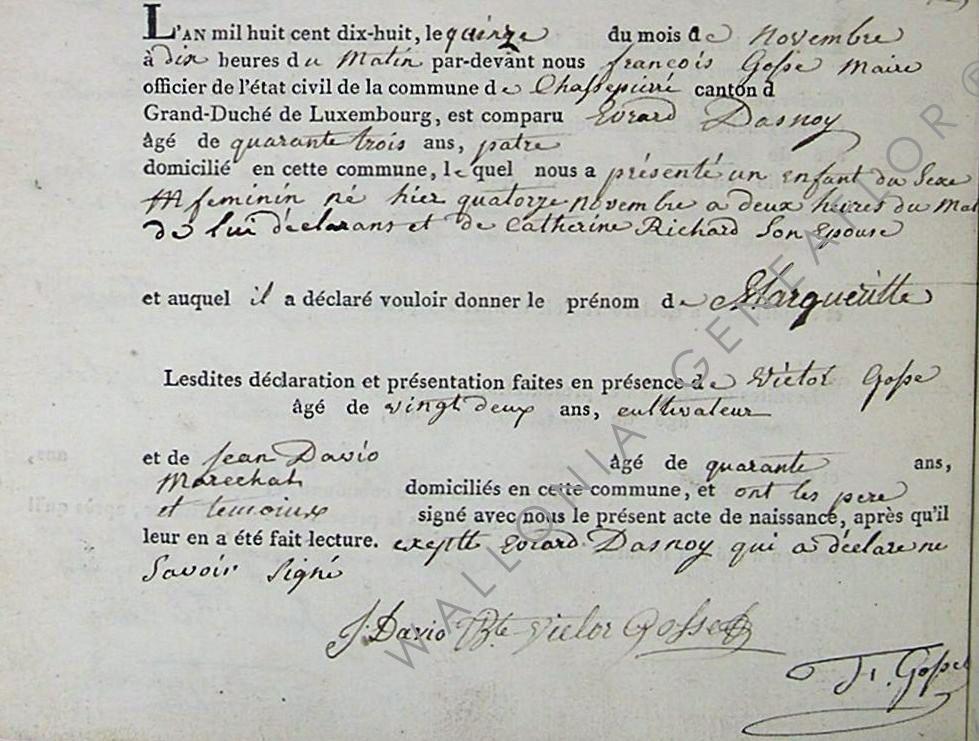 L'AN mil huit cent dix-huit, le quinze du mois de Novembre
à dix heures du Matin par-devant nous françois Gosse Maire
officier de l'état civil de la commune de Chassepierre canton d
Grand-Duché de Luxembourg, est comparu Evrard Dasnoy
âgé de quarante trois ans, patre
domicilié en cette commune, lequel nous a présenté un enfant du Sexe
feminin né hier quatorze novembre a deux heures du Mat
de lui déclarans et de Catherine Richard Son Epouse
et auquel il a déclaré vouloir donner le prénom de Marguéritte
Lesdites déclaration et présentation faites en présence de Victor Gosse
âgé de vingt deux ans, cultivateur
et de Jean David âgé de quarante ans,
Marechal domiciliés en cette commune, et ont les pere
et temoins signé avec nous le présent acte de naissance, après qu'il
leur en a été fait lecture. exeptté Evrard Dasnoy qui a déclaré ne
Savoir Signé
J. David Victor Gosse
F. Gosse
WALLONIA GENEALOR ©